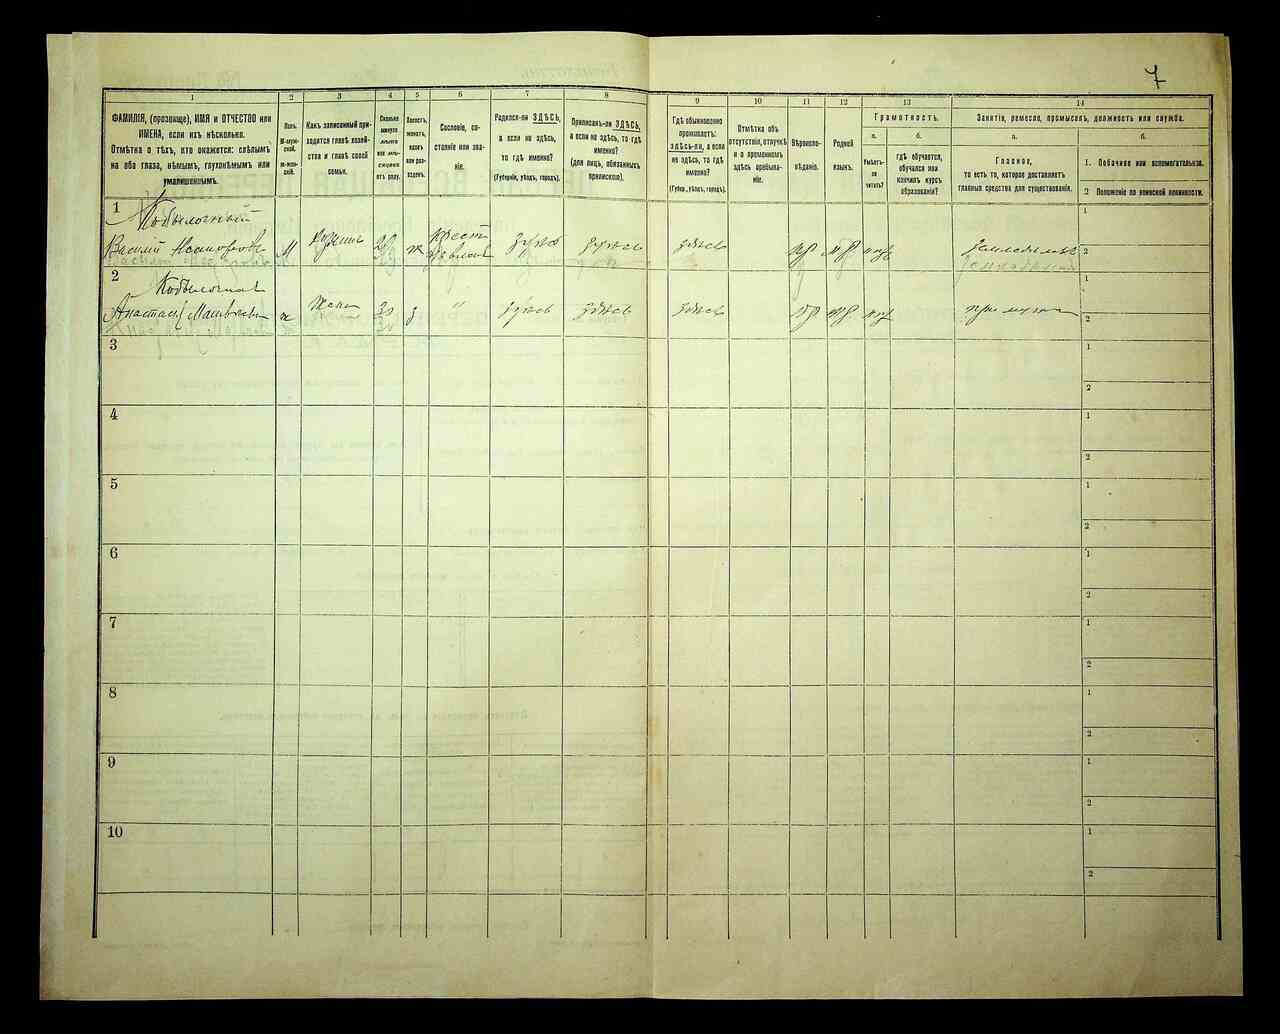 7
1 2 3 4 5 6 7 8 9 10 11 12 13 14
ФАМИЛІЯ, (прозвище), ИМЯ и ОТЧЕСТВО или
ИМЕНА, если ихъ нѣсколько.
Отмѣтка о тѣхъ, кто окажется: слѣпымъ
на оба глаза, нѣмымъ, глухонѣмымъ или
умалишеннымъ.
Полъ.
М-муж-
ской.
ж-жен-
скій.
Какъ записанный при-
ходится главѣ хозяй-
ства и главѣ своей
семьи.
Сколько
минуло
лѣтъ
или мѣ-
сяцевъ
отъ роду.
Холостъ,
женатъ,
вдовъ
или раз-
веденъ.
Сословіе, со-
стояніе или зва-
ніе.
Родился-ли ЗДѢСЬ,
а если не здѣсь,
то гдѣ именно?
(Губернія, уѣздъ, городъ).
Приписанъ-ли ЗДѢСЬ,
а если не здѣсь, то гдѣ
именно?
(для лицъ, обязанныхъ
припиской).
Гдѣ обыкновенно
проживаетъ:
здѣсь-ли, а если
не здѣсь, то гдѣ
именно?
(Губер., уѣздъ, городъ).
Отмѣтка объ
отсутствіи, отлучкѣ
и о временномъ
здѣсь пребыва-
ніи.
Вѣроиспо-
вѣданіе.
Родной
языкъ.
Грамотность.
а.
Умѣетъ-
ли
читать?
б.
гдѣ обучается,
обучался или
кончилъ курсъ
образованія?
Занятіе, ремесло, промыселъ, должность или служба.
а.
Главное,
то есть то, которое доставляетъ
главныя средства для существованія.
б.
1. Побочное или вспомогательное.
2 Положеніе по воинской повинности.
1 Кобылочный
Василій М хозяинъ ж крест здѣсь здѣсь здѣсь пр мр нгр
1
2
2
Анастас ж жена з " здѣсь здѣсь здѣсь пр мр нгр при мужѣ
1
2
3 1
2
4 1
2
5 1
2
6 1
2
7 1
2
8 1
2
9 1
2
10 1
2